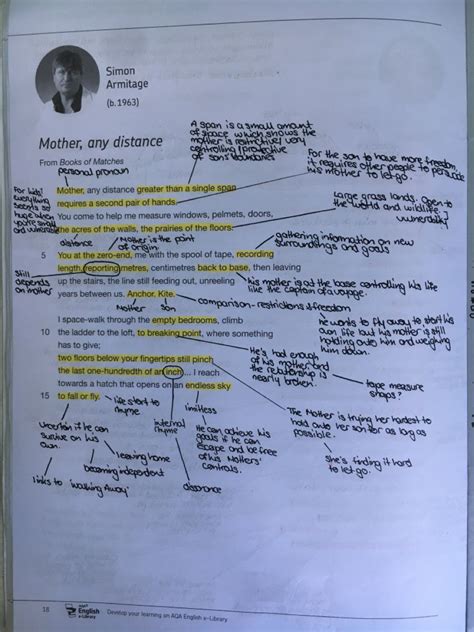 Simon
Armitage
(b. 1963)
A span is a small amount
of space which shows the
mother is restrictive/very
controlling/protective
of sons boundaries
Mother, any distance
From Books of Matches
personal pronoun
For the son to have more freedom
it requires other people to
his mother to let go.
For kids
everything
seems so
huge when
you're small
and vulnerable
Mother, any distance greater than a single span
requires a second pair of hands.
You come to help me measure windows, pelmets, doors,
the acres of the walls, the prairies of the floors.
Large grass lands. Open
to the world and wildlife/
vulnerable
distance
Mother is the point
of origin
gathering information on new
surroundings and goals
5 You at the zero-end, me with the spool of tape, recording
length, reporting metres, centimetres back to base, then leaving
up the stairs, the line still feeding out, unreeling
years between us. Anchor. Kite.
Still
depends
on mother
His mother is at the base controlling his life
like the captain of a voyage.
Mother
Son
comparison - restrictions & freedom
I space-walk through the empty bedrooms, climb
10 the ladder to the loft, to breaking point, where something
has to give;
two floors below your fingertips still pinch
the last one-hundredth of an inch... I reach
towards a hatch that opens on an endless sky
15 to fall or fly.
he wants to fly away to start his
own life but his mother is still
holding onto him and weighing
him down.
He's had enough
of his mother and
the relationship is
nearly broken.
tape measure
shapes?
life start to
rhyme
limitless
internal
rhyme
He can achieve his
goals if he can
escape and be free
of his Mothers'
controls.
The Mother is trying her hardest to
hold onto her son for as long as
possible.
She's finding it hard
to let go.
Uncertain if he can
survive on his
own.
leaving home
becoming independent
links to 'Walking Away'
distance
18
English
e-Library
Develop your learning on AQA English e-Library